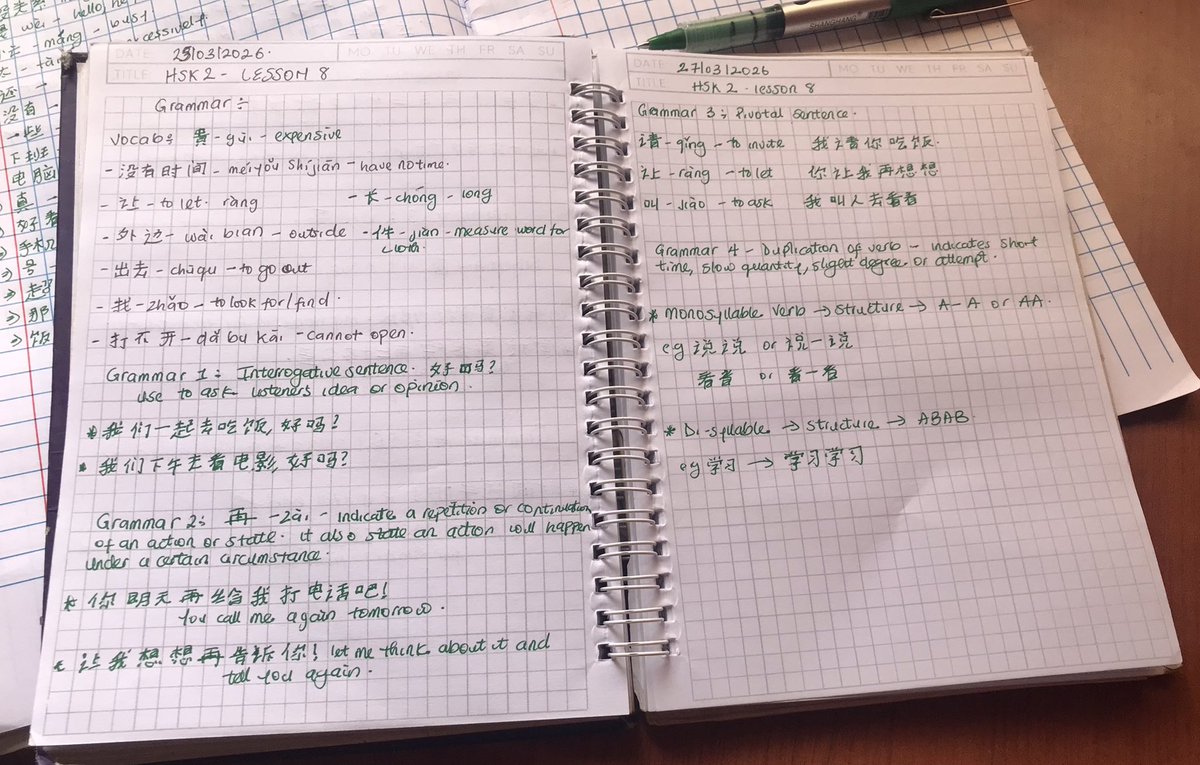 wei - hello
máng - busy
没有
一些
下班
电脑
真
好看
手机
号
那
饭
SHANGHANG
DATE 25/03/2026. MO TU WE TH FR SA SU
TITLE HSK 2 - LESSON 8
Grammar ÷
Vocab: 贵 - guì - expensive
- 没有时间 - méiyǒu shíjiān - have no time.
- 让 - to let - ràng -长 - cháng - long
- 外边 - wài bian - outside - 件 - jiàn - measure word for cloth.
- 出去 - chūqu - to go out
- 找 - zhǎo - to look for/find.
- 打不开 - dǎ bu kāi - cannot open.
Grammar 1: Interrogative sentence. 好吗?
use to ask listeners idea or opinion.
* 我们一起去吃饭, 好吗?
* 我们下午去看电影, 好吗?
Grammar 2: 再 - zài - indicate a repetition or continuation
of an action or state. it also state an action will happen
under a certain circumstance.
* 你明天再给我打电话吧!
You call me again tomorrow.
* 让我想想再告诉你! let me think about it and
tell you again.
DATE 27/03/2026 MO TU WE TH FR SA SU
TITLE HSK 2 - lesson 8
Grammar 3: Pivotal Sentence.
请 - qǐng - to invite 我请你吃饭.
让 - ràng - to let 你让我再想想
叫 - jiào - to ask 我叫人去看看
Grammar 4 - Duplication of verb - indicates short
time, slow quantity, sligest degree or attempt.
* Monosyllable verb → structure → A-A or AA.
eg 说说 or 说一说
看看 or 看一看
* Di-syllable → structure → ABAB
eg 学习 → 学习学习